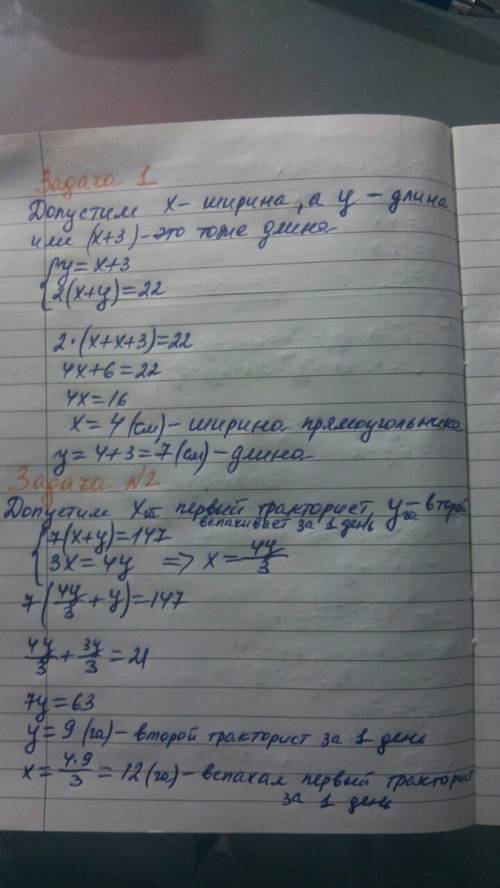 Задача 1
Допустим x - ширина, а y - длина
или (x+3) - это тоже длина
{ y = x+3
{ 2(x+y)=22
2·(x+x+3)=22
4x+6=22
4x=16
x=4(см) - ширина прямоугольника
y=4+3=7(см) - длина
Задача №2
Допустим x га первый тракторист, y га - второй
вспахивает за 1 день
{ 7(x+y)=147
{ 3x=4y => x=4y/3
7(4y/3+y)=147
4y/3+3y/3=21
7y=63
y=9(га) - второй тракторист за 1 день
x=4·9/3=12(га) - вспахал первый тракторист
за 1 день